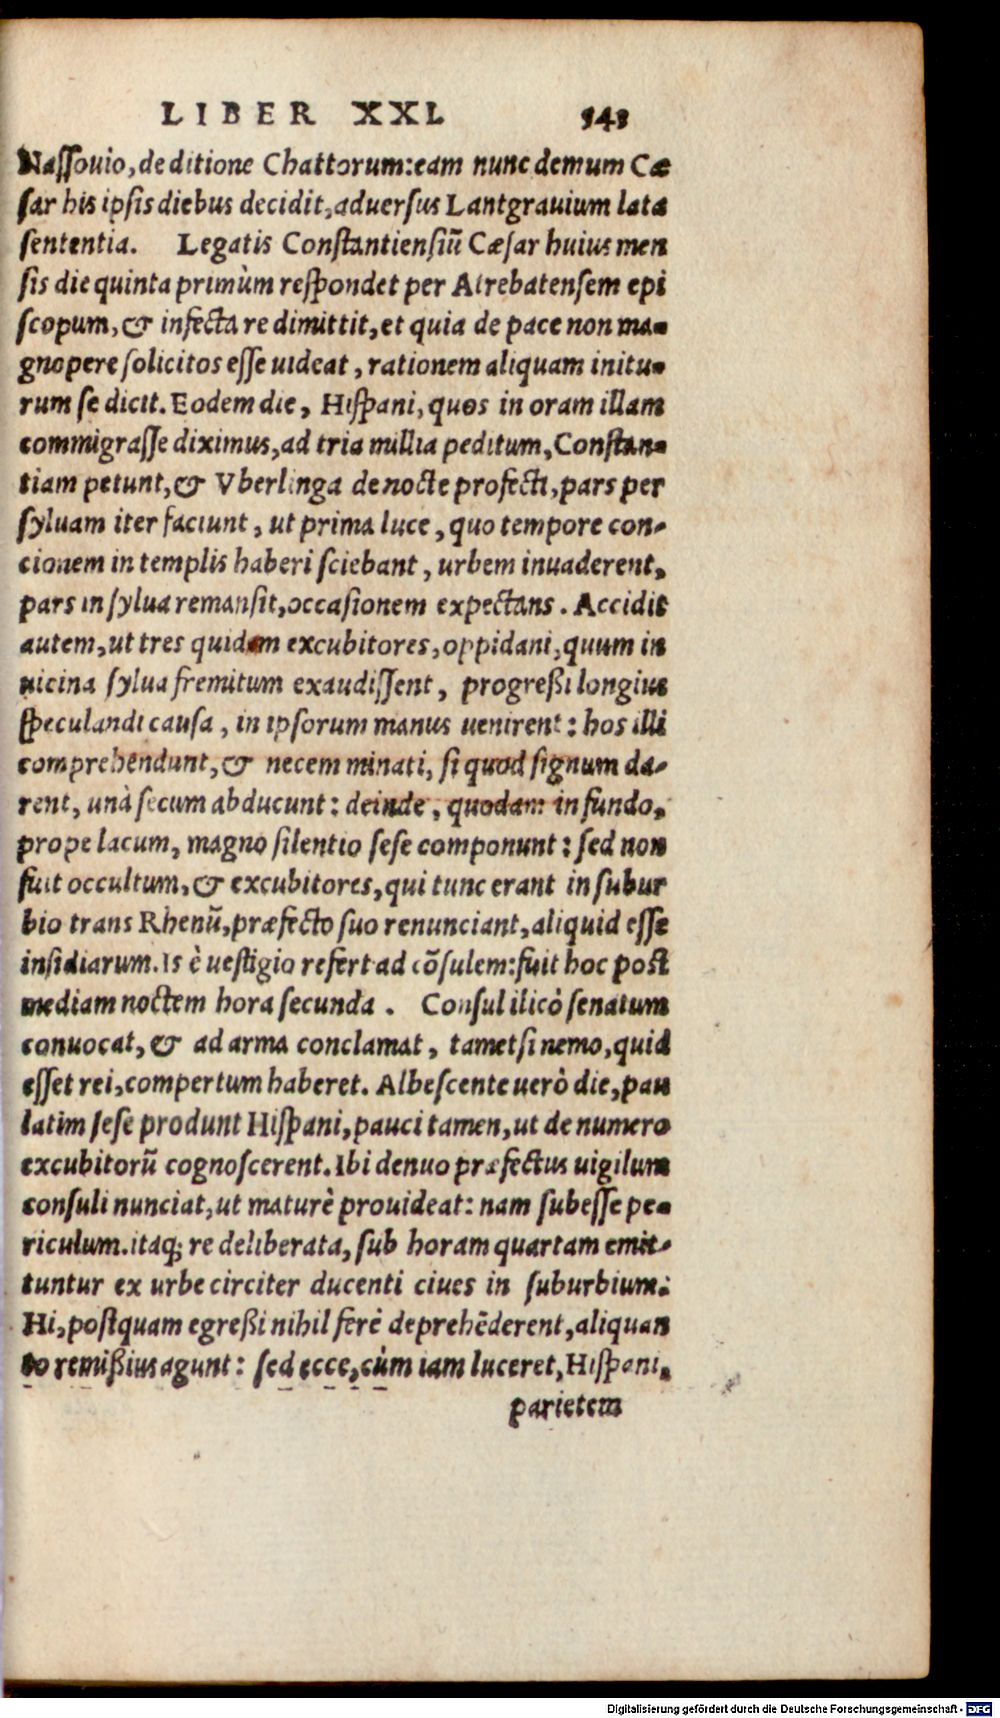 LIBER XXI. 541
Nassouio, de ditione Chattorum: eam nunc demum Cæ
sar his ipsis diebus decidit, aduersus Lantgrauium lata
sententia. Legatis Constantiensiũ Cæsar huius men
sis die quinta primùm respondet per Atrebatensem epi
scopum, & infecta re dimittit, et quia de pace non ma-
gnopere solicitos esse uideat, rationem aliquam initu-
rum se dicit. Eodem die, Hispani, quos in oram illam
commigrasse diximus, ad tria millia peditum, Constan-
tiam petunt, & Vberlinga de nocte profecti, pars per
syluam iter faciunt, ut prima luce, quo tempore con-
cionem in templis haberi sciebant, urbem inuaderent,
pars in sylua remansit, occasionem expectans. Accidit
autem, ut tres quidam excubitores, oppidani, quum in
uicina sylua fremitum exaudissent, progreßi longius
speculandi causa, in ipsorum manus uenirent: hos illi
comprehendunt, & necem minati, si quod signum da-
rent, unà secum abducunt: deinde, quodam in fundo,
prope lacum, magno silentio sese componunt: sed non
fuit occultum, & excubitores, qui tunc erant in subur
bio trans Rhenũ, præfecto suo renunciant, aliquid esse
insidiarum. Is è uestigio refert ad cõsulem: fuit hoc post
mediam noctem hora secunda. Consul ilicò senatum
conuocat, & ad arma conclamat, tametsi nemo, quid
esset rei, compertum haberet. Albescente uerò die, pau
latim sese produnt Hispani, pauci tamen, ut de numero
excubitorũ cognoscerent. Ibi denuo præfectus uigilum
consuli nunciat, ut maturè prouideat: nam subesse pe-
riculum. itaq; re deliberata, sub horam quartam emit-
tuntur ex urbe circiter ducenti ciues in suburbium:
Hi, postquam egreßi nihil ferè deprehẽderent, aliquan
to remißius agunt: sed ecce, cùm iam luceret, Hispani,
parietem
Digitalisierung gefördert durch die Deutsche Forschungsgemeinschaft - DFG